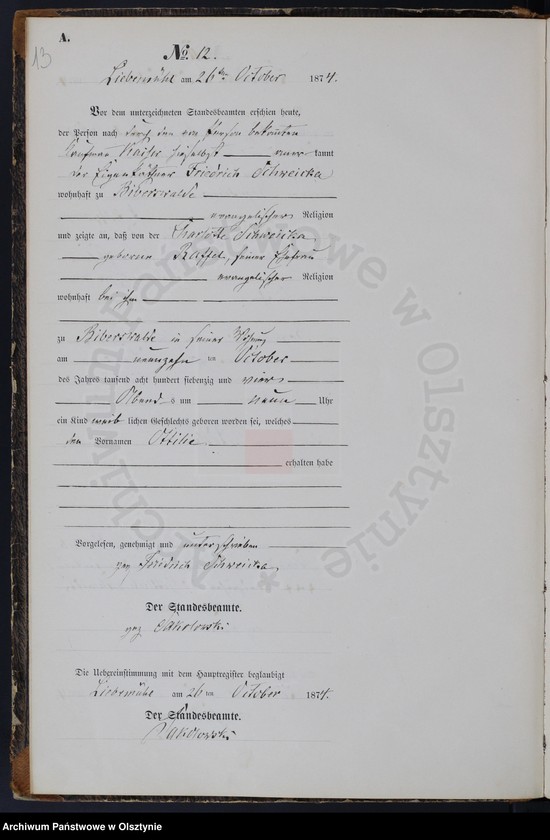 A.
13
No. 12.
Liebemühl am 26ten October 1874.
Vor dem unterzeichneten Standesbeamten erschien heute,
der Person nach durch den von Person bekannten
Kaufmann Kaiser hieselbst anerkannt
der Eigenkäthner Friedrich Schweicka
wohnhaft zu Biberswalde
evangelischer Religion
und zeigte an, daß von der Charlotte Schweicka
geborene Raffel, seiner Ehefrau
evangelischer Religion
wohnhaft bei ihm
zu Biberswalde in seiner Wohnung
am neunzehn ten October
des Jahres tausend acht hundert siebenzig und vier
Abends um neun Uhr
ein Kind weiblichen Geschlechts geboren worden sei, welches
den Vornamen Ottilie
erhalten habe
Vorgelesen, genehmigt und unterschrieben
gez Friedrich Schweicka
Der Standesbeamte.
gez Sakolowski
Die Uebereinstimmung mit dem Hauptregister beglaubigt
Liebemühl am 26ten October 1874.
Der Standesbeamte.
Sakolowski
Archiwum Państwowe w Olsztynie
Archiwum Państwowe w Olsztynie